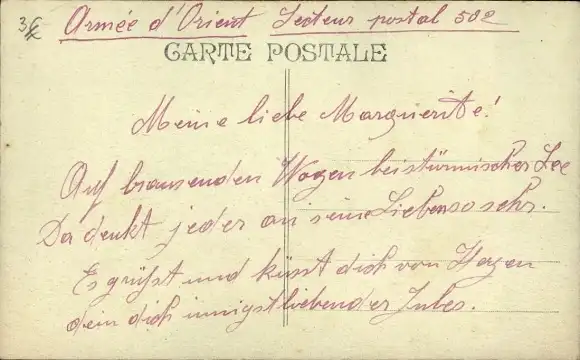 3€
Armée d'Orient Secteur postal 502
CARTE POSTALE
Meine liebe Marguerite!
Auf brausenden Wogen bei stürmischer See
Da denkt jeder an seine Lieben so sehr.
Es grüßt und küsst dich von Herzen
dein dich innigstliebender Jules.